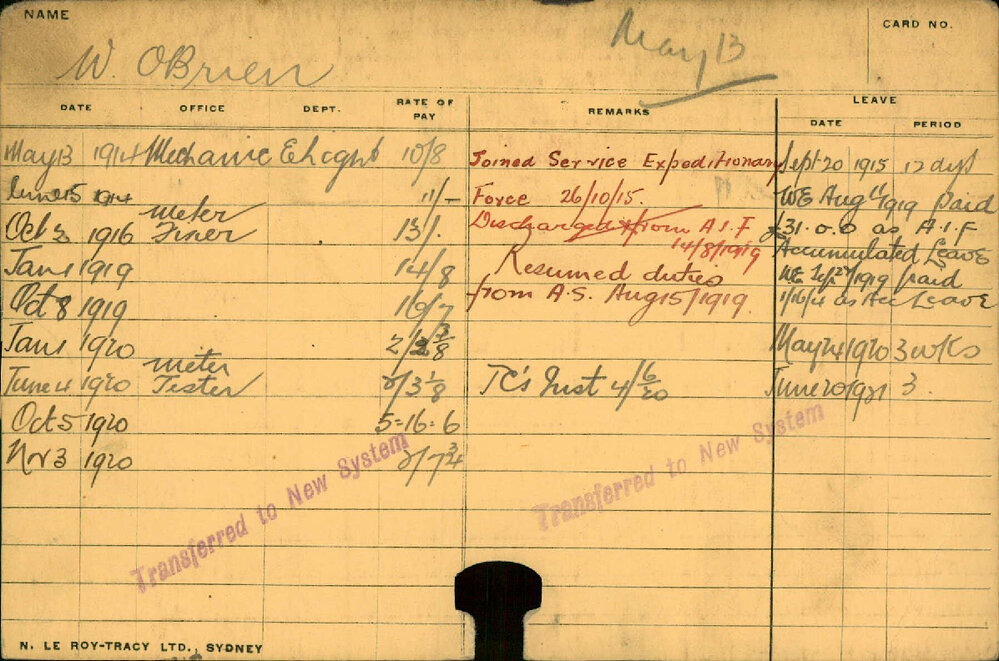 NAME
W. OBrien
May 13
CARD NO.
DATE OFFICE DEPT. RATE OF PAY REMARKS LEAVE
DATE PERIOD
May 13 1914 Mechanic 10/8 Joined Service Expeditionary Sept 20 1915 12 dys
June 15 1914 11/- Force 26/10/15. WE Aug 1919 paid
Oct 1916 meter Fixer 13/. Discharged from A.I.F £31.0.0 as A.I.F
14/8/1919 Accumulated Leave
Jan 1 1919 14/8 Resumed duties WE Sep 27/1919 paid
Oct 8 1919 16/7 from A.S. Aug 15/1919. 1/16/4 as Acc Leave
Jan 1 1920 May 24 1920 3 wks
June 4 1920 meter Tester 2/3 1/8 TC's Inst 4/6/20 June 20 1921 3.
Oct 5 1920 5-16-6
Nov 3 1920 2/7 3/4
Transferred to New System
Transferred to New System
N. LE ROY-TRACY LTD., SYDNEY